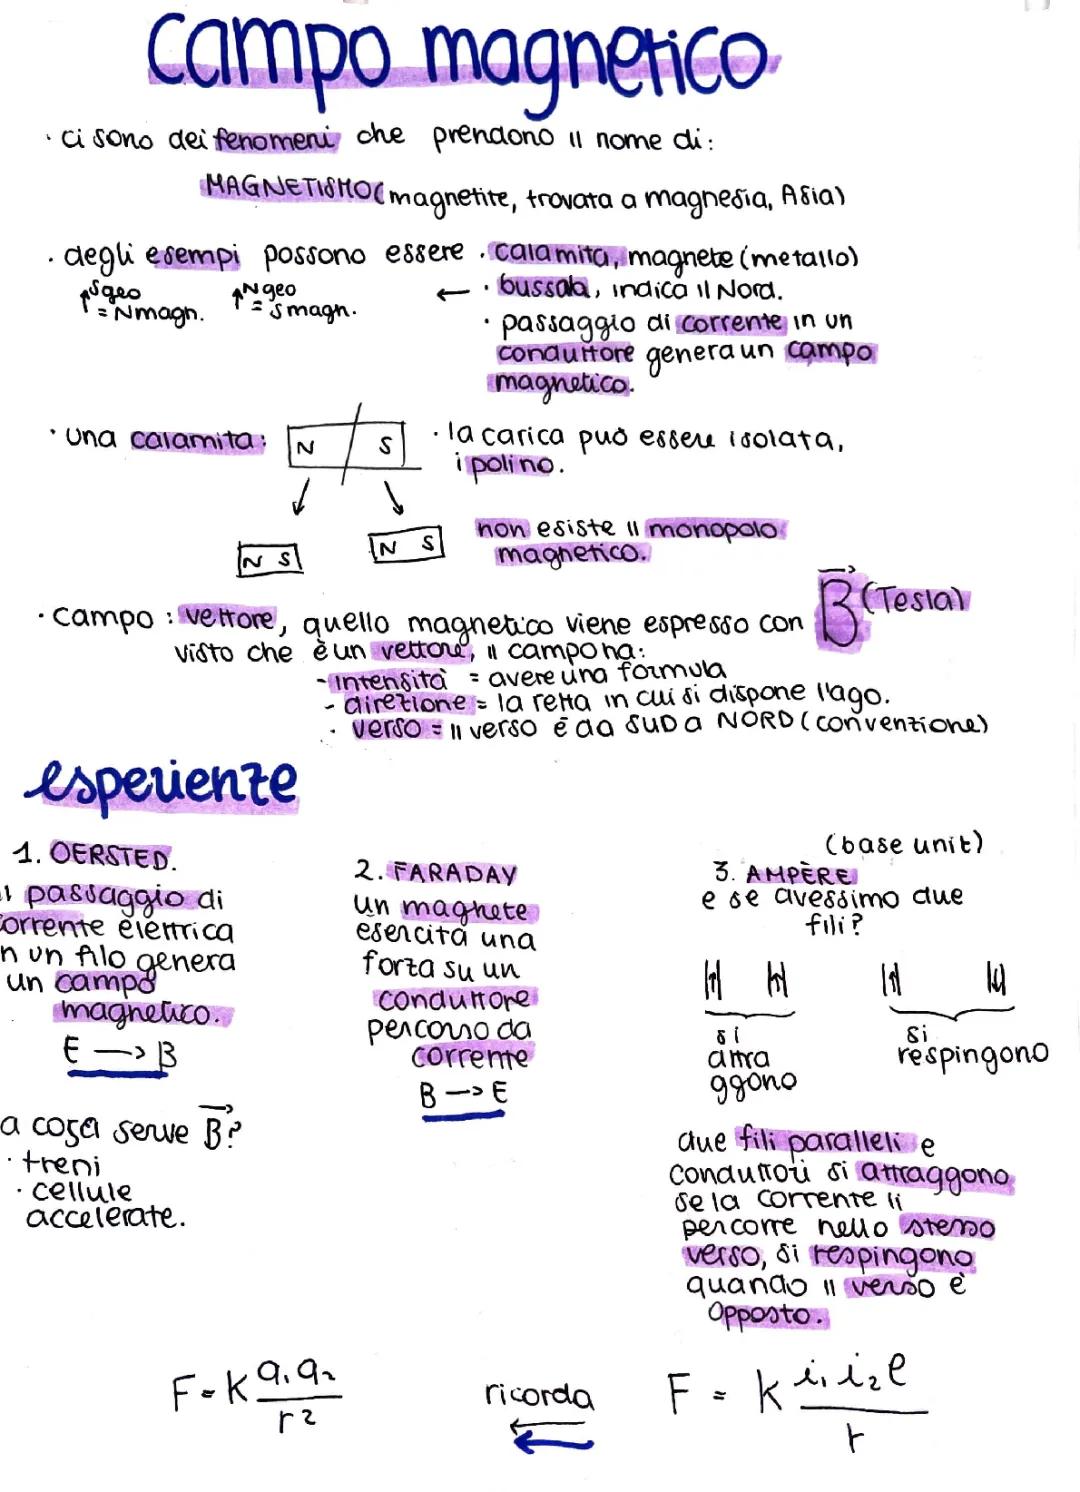 Campo magnetico
· ci sono dei fenomeni che prendono il nome di:
MAGNETISMO (magnetite, trovata a magnesia, Asia)
· degli esempi possono essere · calamita, magnete (metallo)
↑ Sgeo = Nmagn. ↑ Ngeo = Smagn. ← · bussola, indica il Nord.
· passaggio di corrente in un
conduttore genera un campo
magnetico.
· una calamita: N S · la carica può essere isolata,
i poli no.
N S N S
non esiste il monopolo
magnetico.
· campo: vettore, quello magnetico viene espresso con B (Tesla)
visto che è un vettore, il campo ha:
- intensità = avere una formula
- direzione = la retta in cui si dispone l'ago.
· verso = il verso è da SUD a NORD (convenzione)
esperienze
1. OERSTED.
il passaggio di
corrente elettrica
in un filo genera
un campo
magnetico.
E -> B
a cosa serve B?
· treni
· cellule
accelerate.
2. FARADAY
un magnete
esercita una
forza su un
conduttore
percorso da
corrente
B -> E
(base unit)
3. AMPÈRE
e se avessimo due
fili?
si
attra
ggono
si
respingono
due fili paralleli e
conduttori si attraggono
se la corrente li
percorre nello stesso
verso, si respingono
quando il verso è
opposto.
F = K q₁ q₂ / r²
ricorda
F = K i₁ i₂ l / r